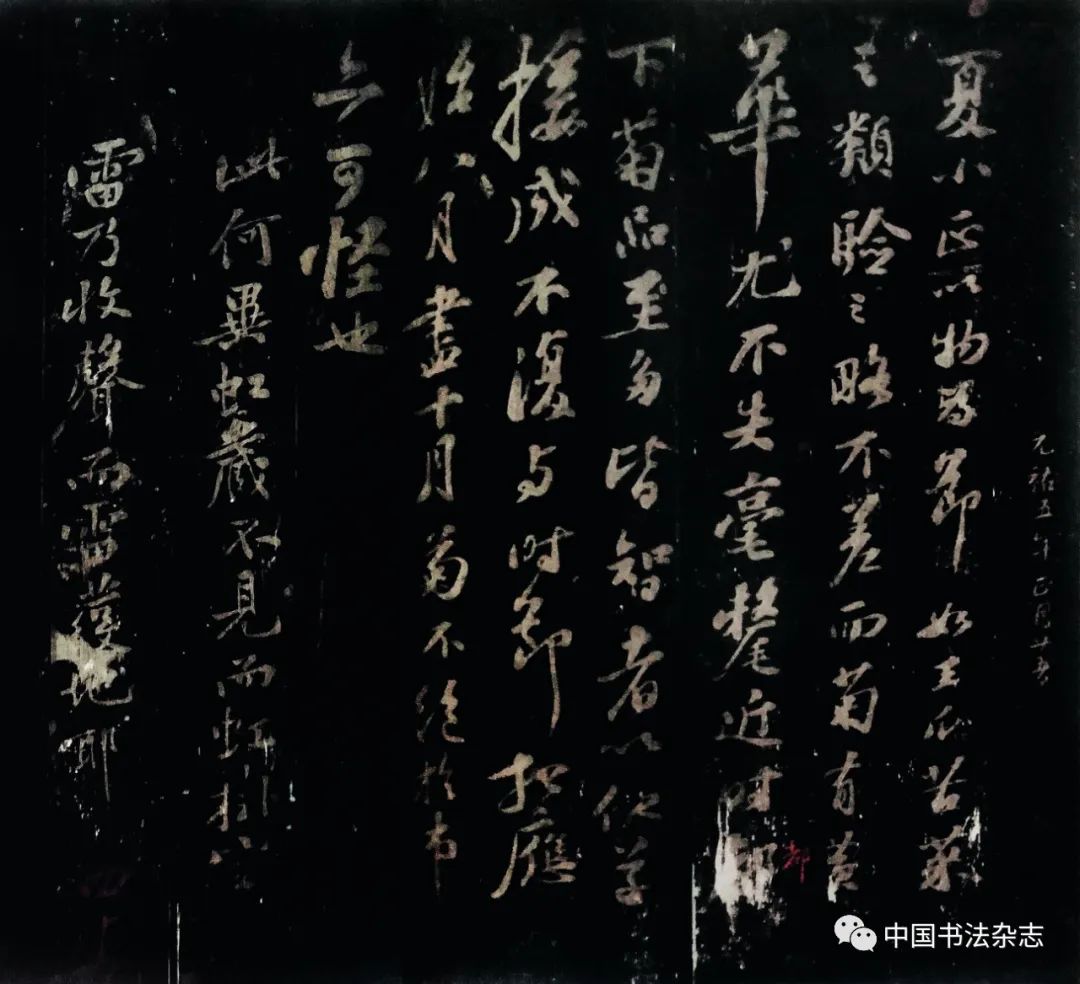 元祐五年正月廿
夏小正以物為節如王瓜苦菜
之類驗之略不差而菊有黃
華尤不失毫釐近時都
都
下菊品至多皆智者以他草
接成不復与時節相應
始八月盡十月菊不絕於市
亦可怪也
此何異虹藏不見而
雷乃收聲而雷地耶
中国书法杂志